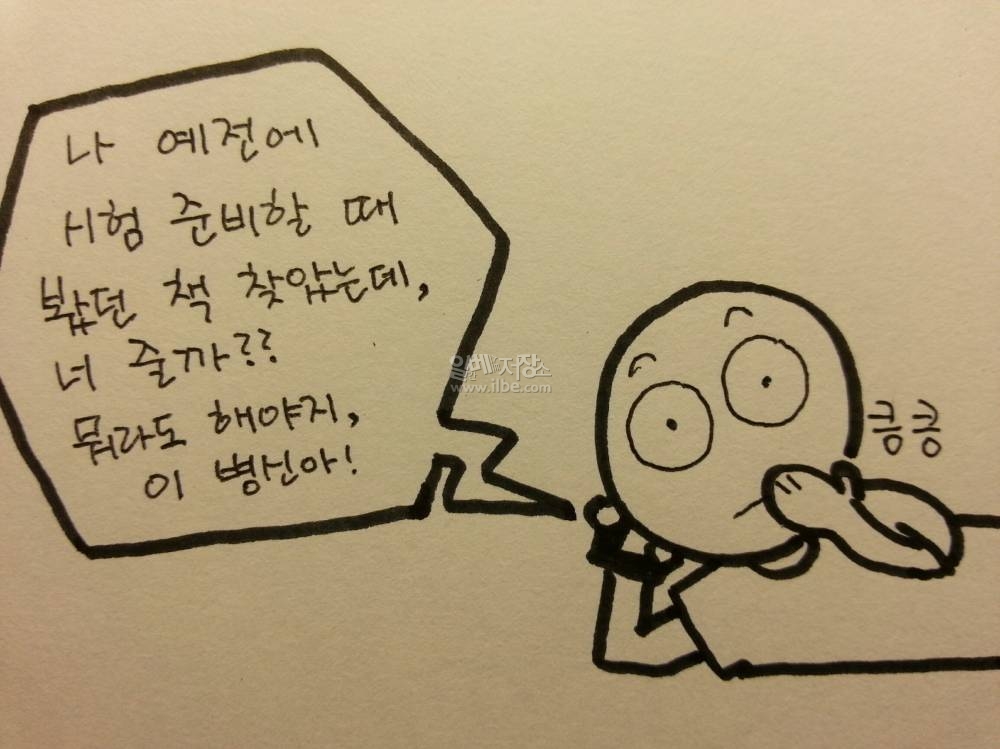 나 예전에
시험 준비할 때
봤던 책 찾았는데,
너 줄까??
뭐라도 해야지,
이 병신아!
일베저장소
www.ilbe.com
킁킁